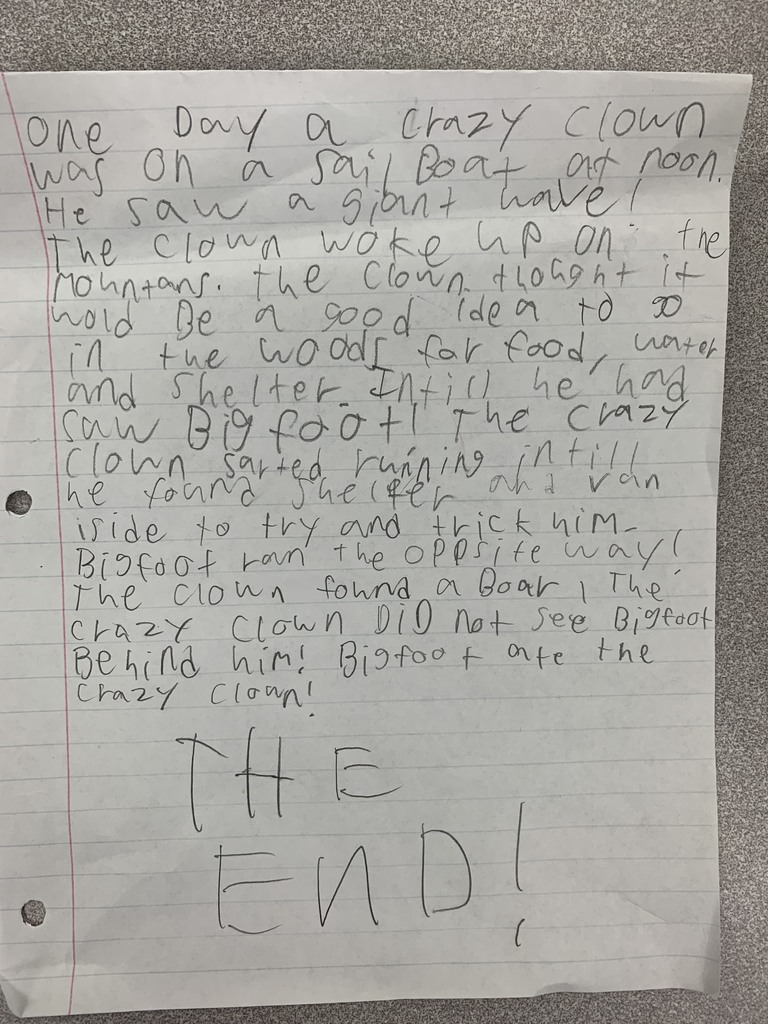 One Day a Crazy Clown
was on a sail Boat at noon.
He saw a giant wave!
The Clown woke up on the
Mountans. the Clown thought it
wold Be a good idea to go
in the woods for food, water
and shelter. Intill he had
saw Bigfoot! The Crazy
Clown sarted running intill
he found shelter and ran
iside to try and trick him.
Bigfoot ran the oppsite way!
The Clown found a Boat, The
Crazy Clown DiD not see Bigfoot
Behind him! Bigfoot ate the
Crazy Clown!
THE
END!